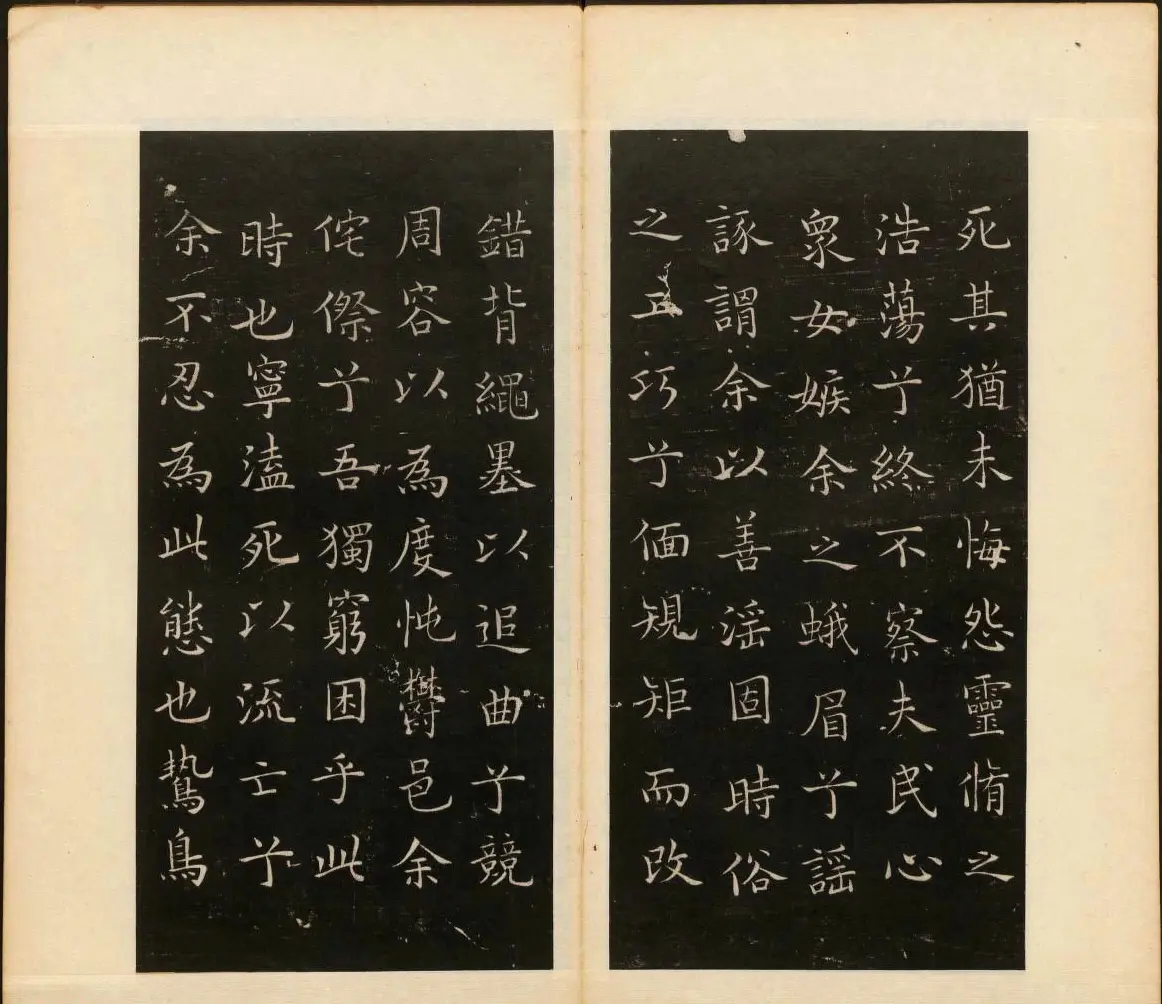 死其猶未悔怨靈脩之
浩蕩兮終不察夫民心
衆女嫉余之蛾眉兮謡
諑謂余以善滛固時俗
之工巧兮偭規矩而改
錯背繩墨以追曲兮競
周容以為度忳欝邑余
侘傺兮吾獨窮困乎此
時也寧溘死以流亡兮
余不忍為此態也鷙鳥